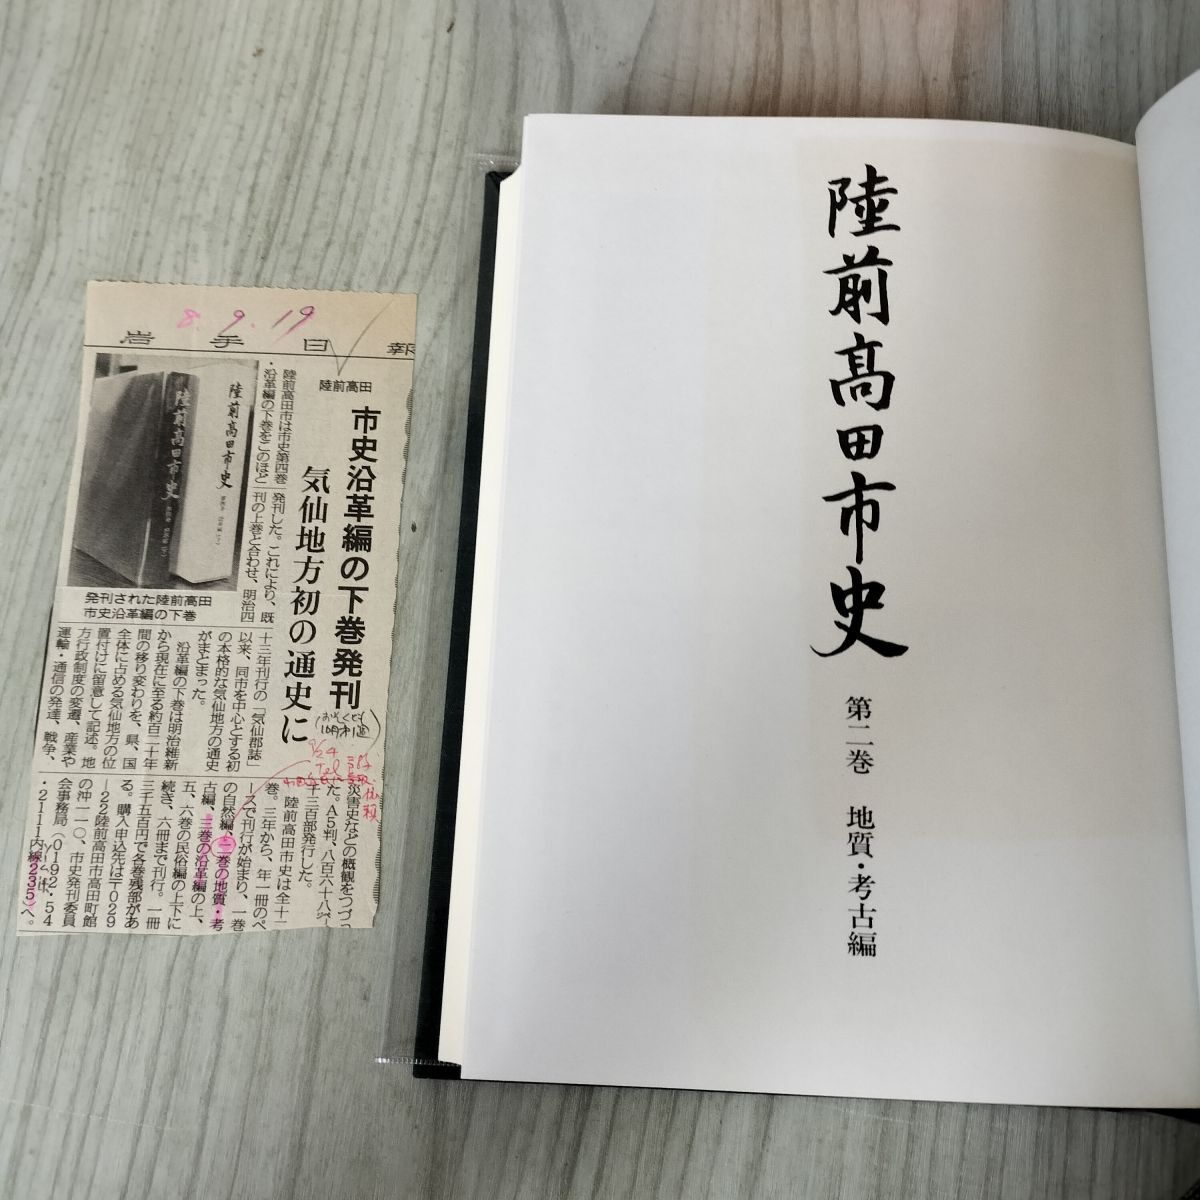 陸前高田市史
第二巻 地質・考古編
8.9.19
岩手日報
陸前高田
市史沿革編の下巻発刊
気仙地方初の通史に
陸前高田市史
陸前高田市史
発刊された陸前高田
市史沿革編の下巻
陸前高田市は市史第四巻
・沿革編の下巻をこのほど
発刊した。これにより、既
刊の上巻と合わせ、明治四
十三年刊行の「気仙郡誌」
以来、同市を中心とする初
の本格的な気仙地方の通史
がまとまった。
沿革編の下巻は明治維新
から現在に至る約百二十年
間の移り変わりを、県、国
全体に占める気仙地方の位
置付けに留意して記述。地
方行政制度の変遷、産業や
運輸・通信の発達、戦争、
災害史などの概観をつづっ
た。A5判、八百六十八㌻
千三百部発行した。
陸前高田市史は全十一
巻。三年から、年一冊のペ
ースで刊行が始まり、一巻
の自然編、二巻の地質・考
古編、三巻の沿革編の上、
五、六巻の民俗編の上下に
続き、六冊まで刊行。一冊
三千五百円で各巻残部があ
る。購入申込先は〒029
―22陸前高田市高田町館
の沖一一〇、市史発刊委員
会事務局(0192・54
・2111内線235)へ。
9/24
Tel